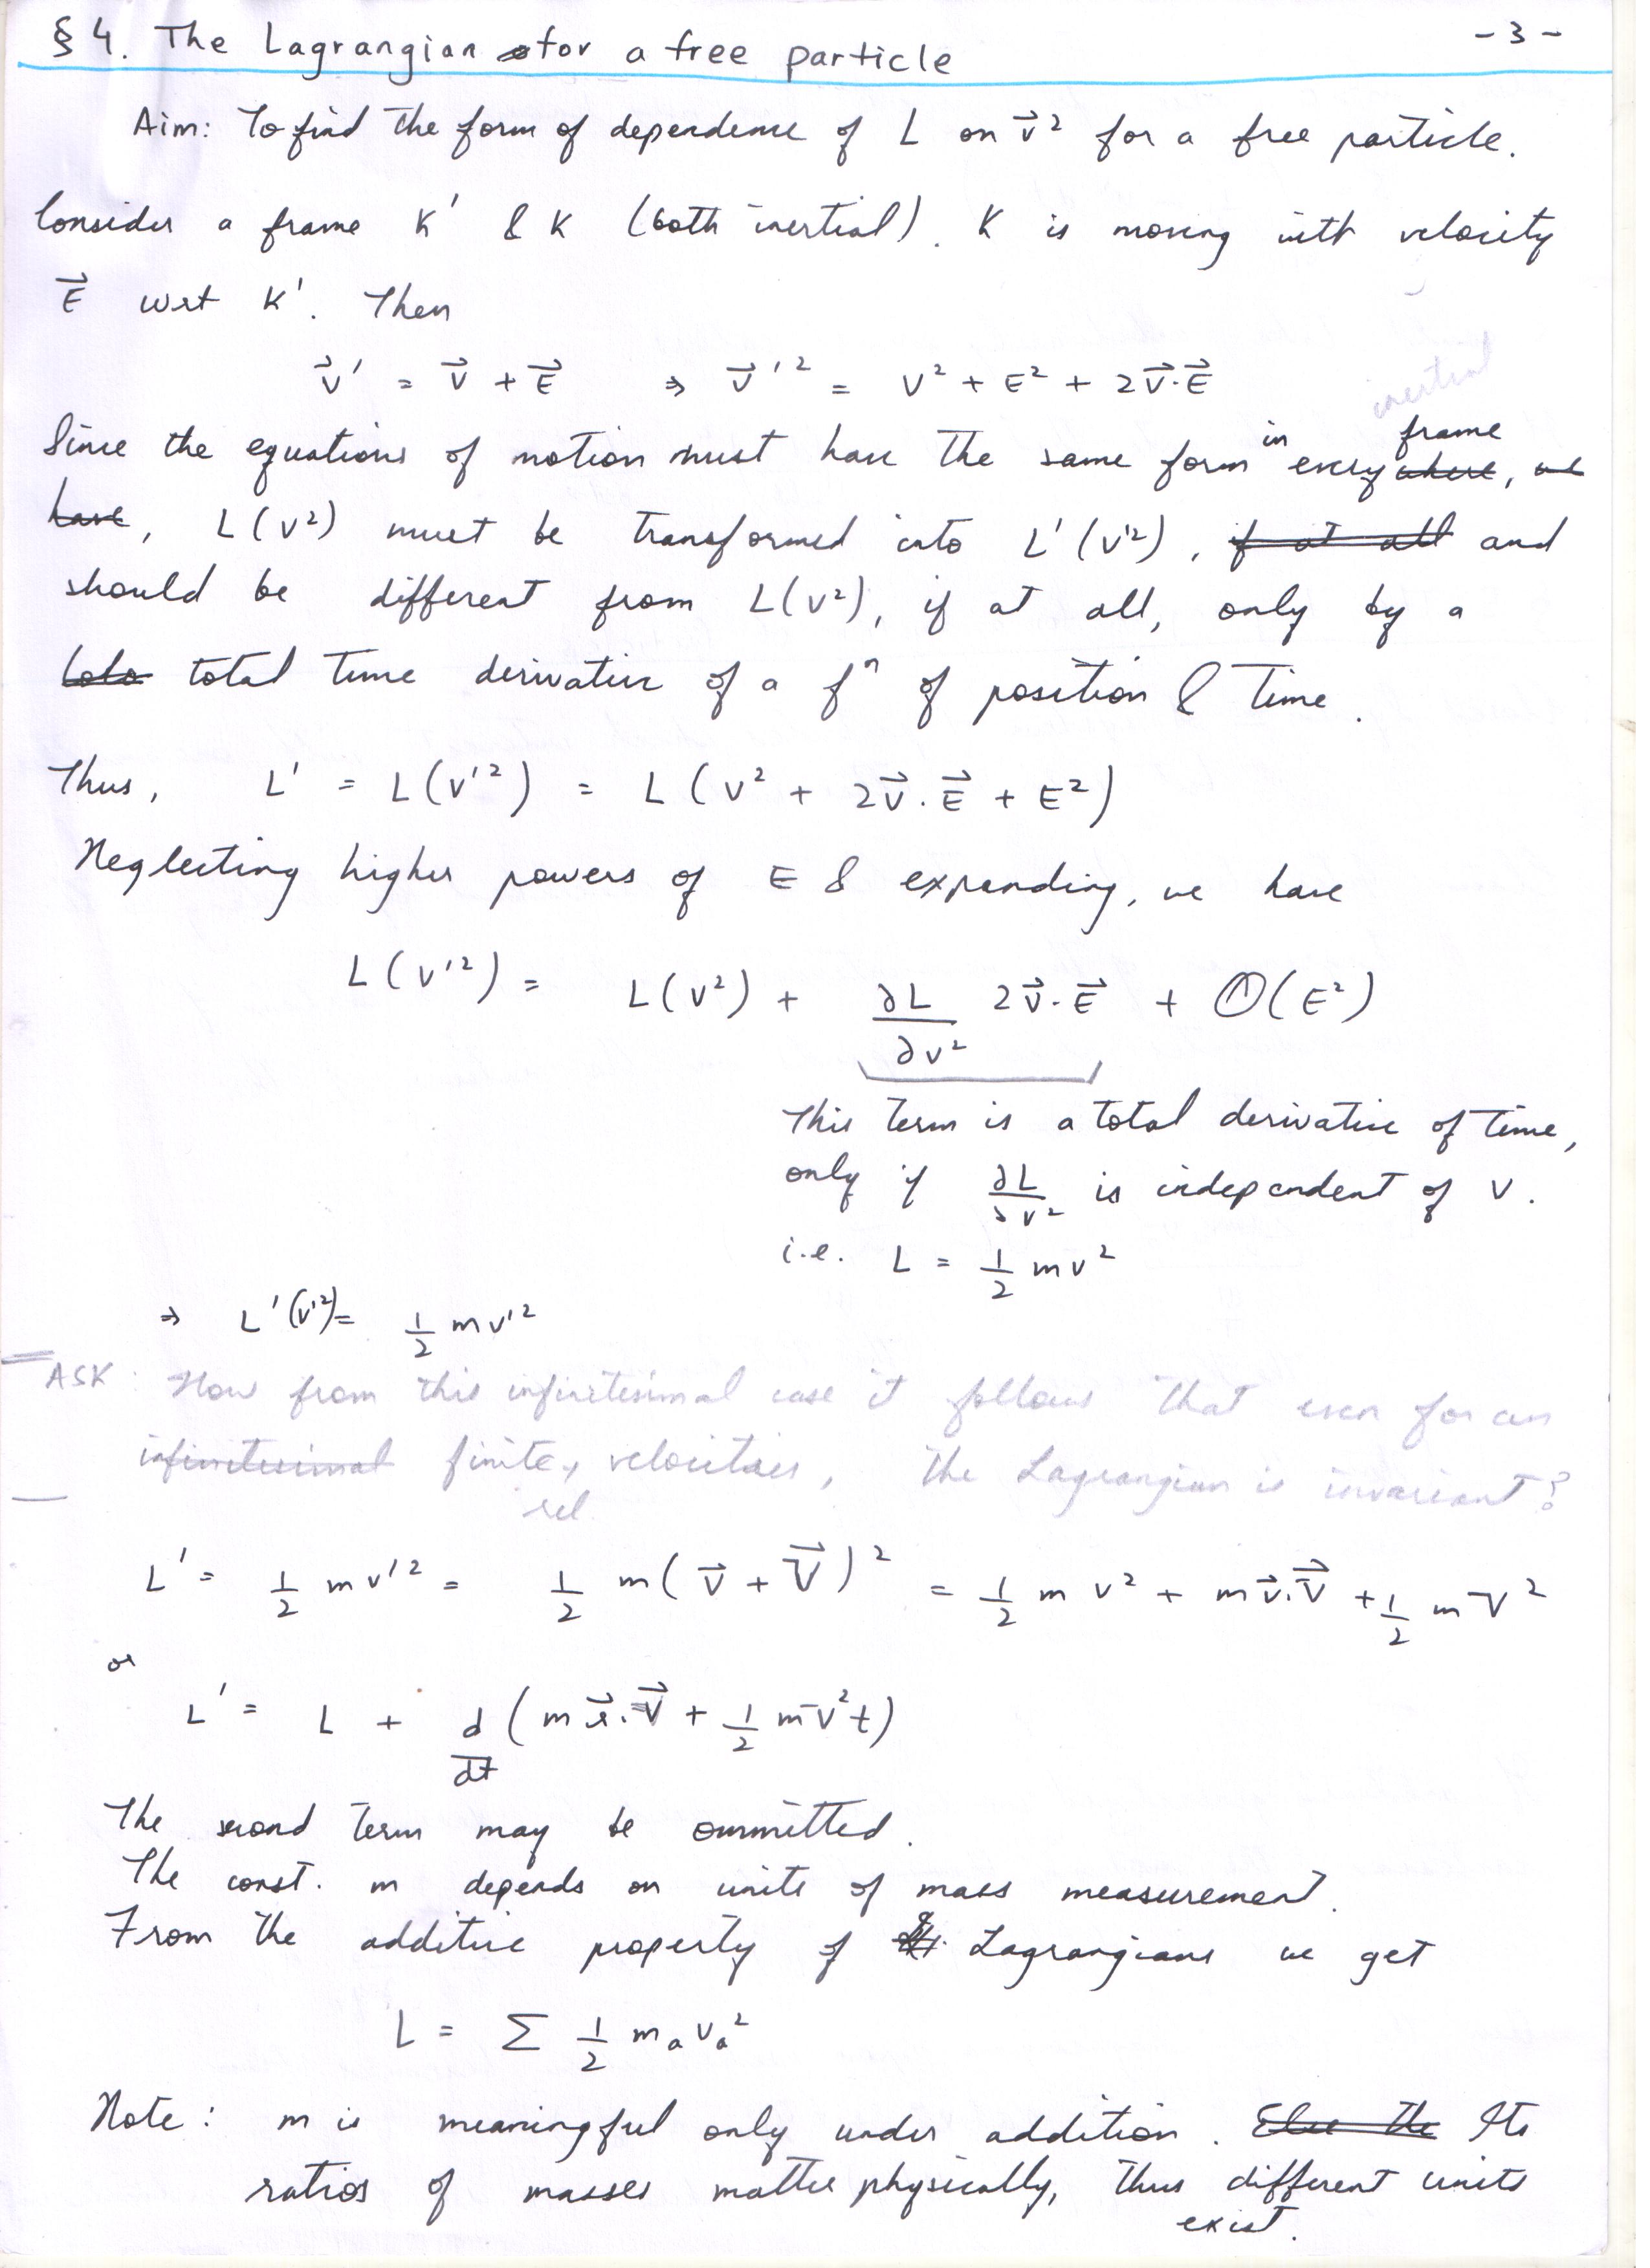 § 4. The Lagrangian for a free particle
- 3 -
Aim: To find the form of dependence of L on v⃗² for a free particle.
Consider a frame K' & K (both inertial). K is moving with velocity
E⃗ wrt K'. Then
v⃗' = v⃗ + E⃗ ⇒ v⃗'² = v² + E² + 2v⃗.E⃗
inertial
Since the equations of motion must have the same form in every ~~where~~ frame, ~~we~~
~~have~~, L(v²) must be transformed into L'(v'²), ~~if at all~~ and
should be different from L(v²), if at all, only by a
total time derivative of a fⁿ of position & time.
Thus, L' = L(v'²) = L(v² + 2v⃗.E⃗ + E²)
Neglecting higher powers of E & expanding, we have
L(v'²) = L(v²) + ∂L/∂v² 2v⃗.E⃗ + O(E²)
This term is a total derivative of time,
only if ∂L/∂v² is independent of v.
i.e. L = 1/2 mv²
⇒ L'(v'²) = 1/2 mv'²
ASK: How from this infinitesimal case it follows that even for an
~~infinitesimal~~ finite, rel. velocities, the Lagrangian is invariant?
L' = 1/2 mv'² = 1/2 m(v⃗ + V⃗)² = 1/2 m v² + m v⃗.V⃗ + 1/2 m V²
or
L' = L + d/dt (m r⃗.V⃗ + 1/2 m V² t)
The second term may be ommitted.
The const. m depends on units of mass measurement.
From the additive property of Lagrangians we get
L = Σ 1/2 mₐ vₐ²
Note: m is meaningful only under addition. ~~Else the~~ Its
ratios of masses matter physically, thus different units
exist.